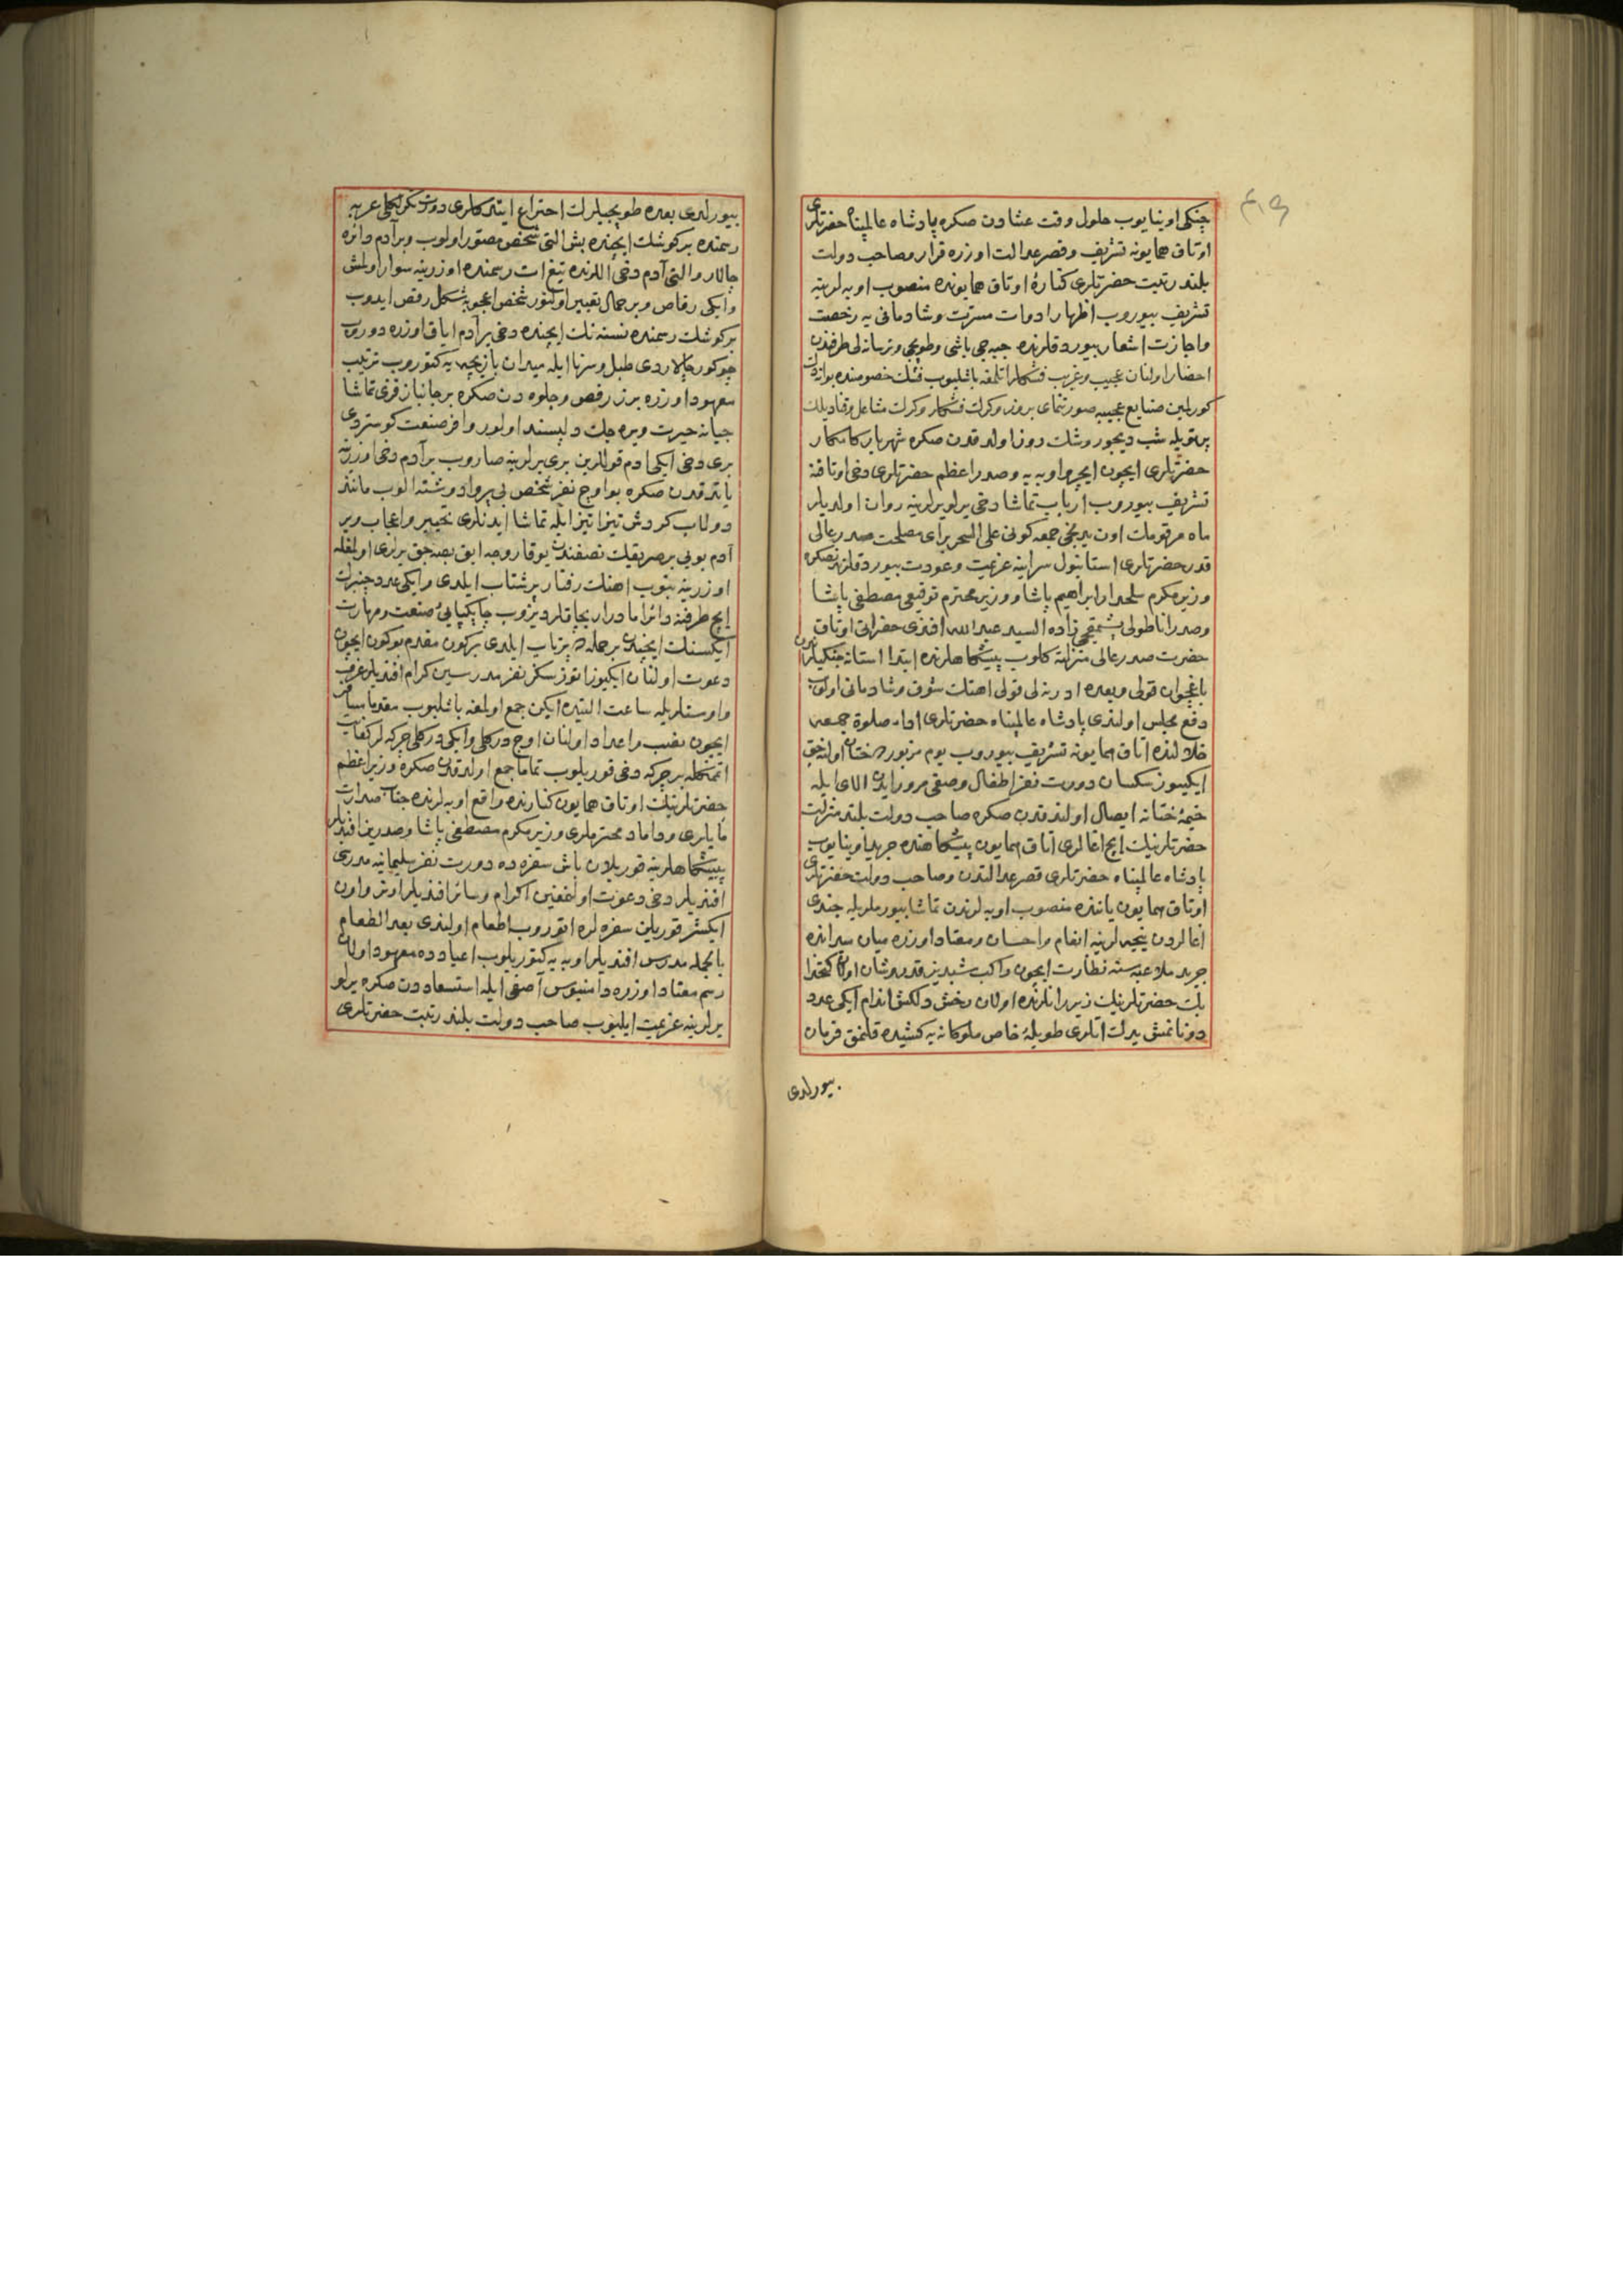 چنكی اوینایوب حلول وقت عشادن صكره پادشاه عالمپناه حضرتلری
اوتاق همایونه تشریف وقصر عدالت اوزره قرار وصاحب دولت
بلند رتبت حضرتلری كنارۀ اوتاق همایونده منصوب اوبه لرینه
تشریف بیوروب اظهار ادوات مسرت وشادمانی یه رخصت
واجازت اشعار بیوردقلرنده جبه جی باشی وطوپجی وترسانه لی طرفندن
احضار اولنان عجیب وغریب فشنكلر اتلمغه باشلیوب
كوریلن صنایع عجیبه صورتنمای بروز وكرك فشنكلر وكرك مشاعل وقنادیلك
پرتویله شب دیجور روشك روز اولدقدن صكره شهریار كامكار
حضرتلری ایچون ایچرو اوبه یه وصدر اعظم حضرتلری دخی اوتاقنه
تشریف بیوروب ارباب تماشا دخی یرلو یرلرینه روان اولدیلر
ماه مرقومك اون برنجی جمعه كونی علی السحر برای مصلحت صدر عالی
قدر حضرتلری استانبول سراینه عزیمت وعودت بیوردقلرندنصكره
وزیر مكرم سلحدار ابراهیم پاشا ووزیر محترم توقیعی مصطفی پاشا
وصدر اناطولی پشمقجی زاده السید عبد الله افندی حضراتی اوتاق
حضرت صدر عالی منزلته كلوب پیشكاهلرنده ابتدا استانه چنكیلری
باغچوان قولی وبعده ادرنه لی قولی اهنك شوق وشادمانی اولوب
دفع مجلس اولندی پادشاه عالمپناه حضرتلری ادای صلوة جمعه
خلالنده اتاق همایونه تشریف بیوروب یوم مزبورده ختان اولنه جق
ایكیوز سكسان دورت نفر اطفال وصفی مرور ایدن الای ایله
خیمۀ ختانه ایصال اولندقدن صكره صاحب دولت بلند منزلت
حضرتلرینك ایچ اغالری اتاق همایون پیشكاهنده جرید اوینایوب
پادشاه عالمپناه حضرتلری قصر عدالتدن وصاحب دولت حضرتلری
اوتاق همایون یاننده منصوب اوبه لرندن تماشا بیورملریله جندی
اغالردن نیجه لرینه انعام واحسان ومعتاد اوزره میان میدانده
جرید ملاعبه سنه نظارت ایچون راكب شبدیز قدر وشان اولان كتخدا
بك حضرتلرینك زیر رانلرنده اولان رخش دلكش اندام ایكی عدد
دونانمش یدك اتلری طویلۀ خاص ملوكانه یه كشیده قلنمق فرمان
بیورلدی
بیورلدی بعده طوپجیلرك اختراع ایتدكلری دورت تكرلكلی عربه
رسمنده بر كوشك ایچنده بش التی شخص مصور اولوب وبر آدم دائره
چالار والتی آدم دخی اللرنده تیغ ات رسمنده اوزرینه سوار اولمش
وایكی رقاص وبر حمال تعبیر اولنور شخص اعجوبه شكل رقص ایدوب
بر كوشك رسمنده نسنه نك ایچنده دخی بر آدم ایاق اوزره دوروب
چوكور چالاردی طبل وسرنا ایله میدان بازیچه یه كتوروب ترتیب
معهود اوزره برز رقص وجلوه دن صكره بر جانباز قزی تماشا
جیانه حیرت ویره جك دلپسند اولور وافر صنعت كوستردی
بری دخی ایكی ادم قوللرین بری برلرینه صاروب بر آدم دخی اوزرینه
یاتدقدن صكره بو اوچ نفر شخص بی پروا دوشنه الوب مانند
دولاب كردش تیزاتیز ایله تماشا ایدنلری تحییر واعجاب وبر
آدم بویی بر صریقك نصفندن یوقاروجه ایق بصه جق یرلری اولمغله
اوزرینه بنوب اهنك رفتار پرشتاب ایلدی وایكی عدد چنبرك
ایچ طرفنه دائرا مادار بچاقلر دیزوب چابكپایی صنعت ومهارت
ایكسنك ایچندن بر حمله ده پرتاب ایلدی بر كون مقدم بو كون ایچون
دعوت اولنان ایكیوز اتوز سكز نفر مدرسین كرام افندیلر عرف
واوستلریله ساعت التیده ایكن جمع اولمغه باشلیوب مقدما مسافر
ایچون نصب واعداد اولنان اوچ دركلی وایكی دركلی چركه لر كفایت
اتمكله بر چركه دخی قوریلوب تماما جمع اولدقدن صكره وزیر اعظم
حضرتلرینك اوتاق همایون كنارنده واقع اوبه لرنده جناب صدارت
مابلری وداماد محترملری وزیر مكرم مصطفی پاشا وصدرین افندیلر
پیشكاهلرینه قوریلان باش سفره ده دورت نفر سلیمانیه مدرسی
افندیلر دخی دعوت اولنمغین اكرام وسائر افندیلر اونر واون
ایكیشر قوریلن سفره لره اتوروب اطعام اولندی بعد الطعام
بالجمله مدرس افندیلر اوبه یه كتوریلوب اعیادده معهود اولان
رسم معتاد اوزره دامنبوس آصفی ایله استسعاددن صكره یرلو
یرلرینه عزیمت ایلیوب صاحب دولت بلند رتبت حضرتلری